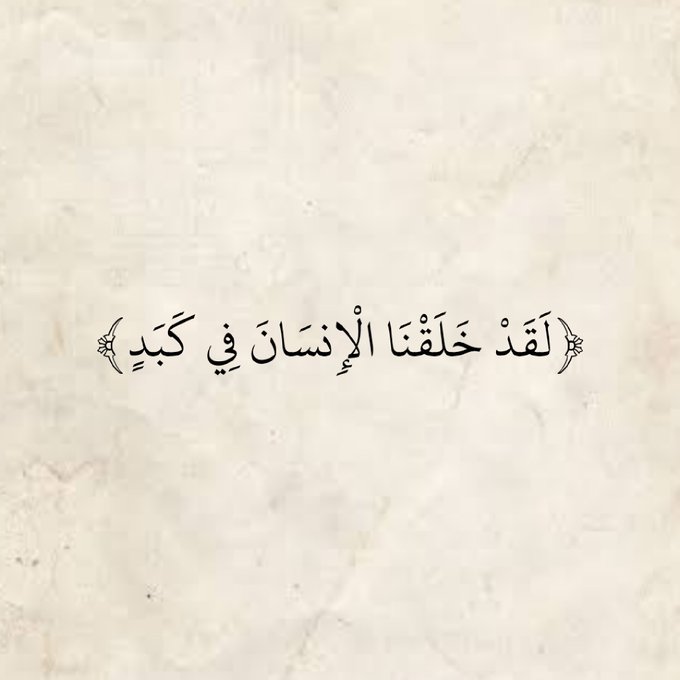 ﴿لَقَدْ خَلَقْنَا الْإِنسَانَ فِي كَبَدٍ﴾